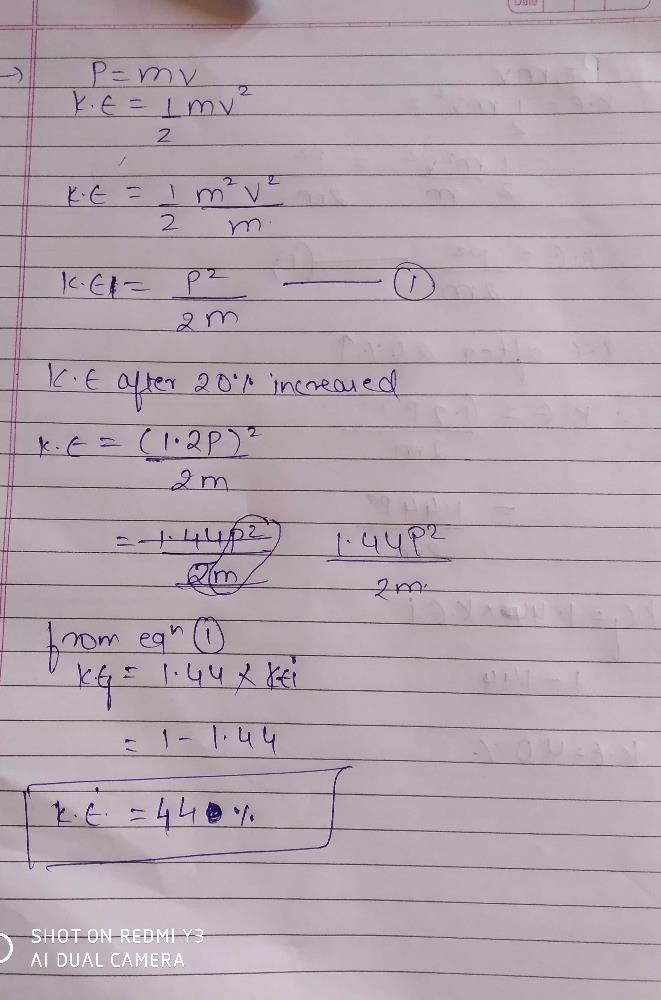 Date
→ P = mv
K.E = 1/2 mv²
K.E = 1/2 m²v²/m
K.E = P²/2m —— ①
K.E after 20% increased
K.E = (1.2P)²/2m
= 1.44P²/2m 1.44P²/2m
from eqⁿ ①
KEf = 1.44 × KEi
= 1 - 1.44
K.E. = 44 %
SHOT ON REDMI Y3
AI DUAL CAMERA